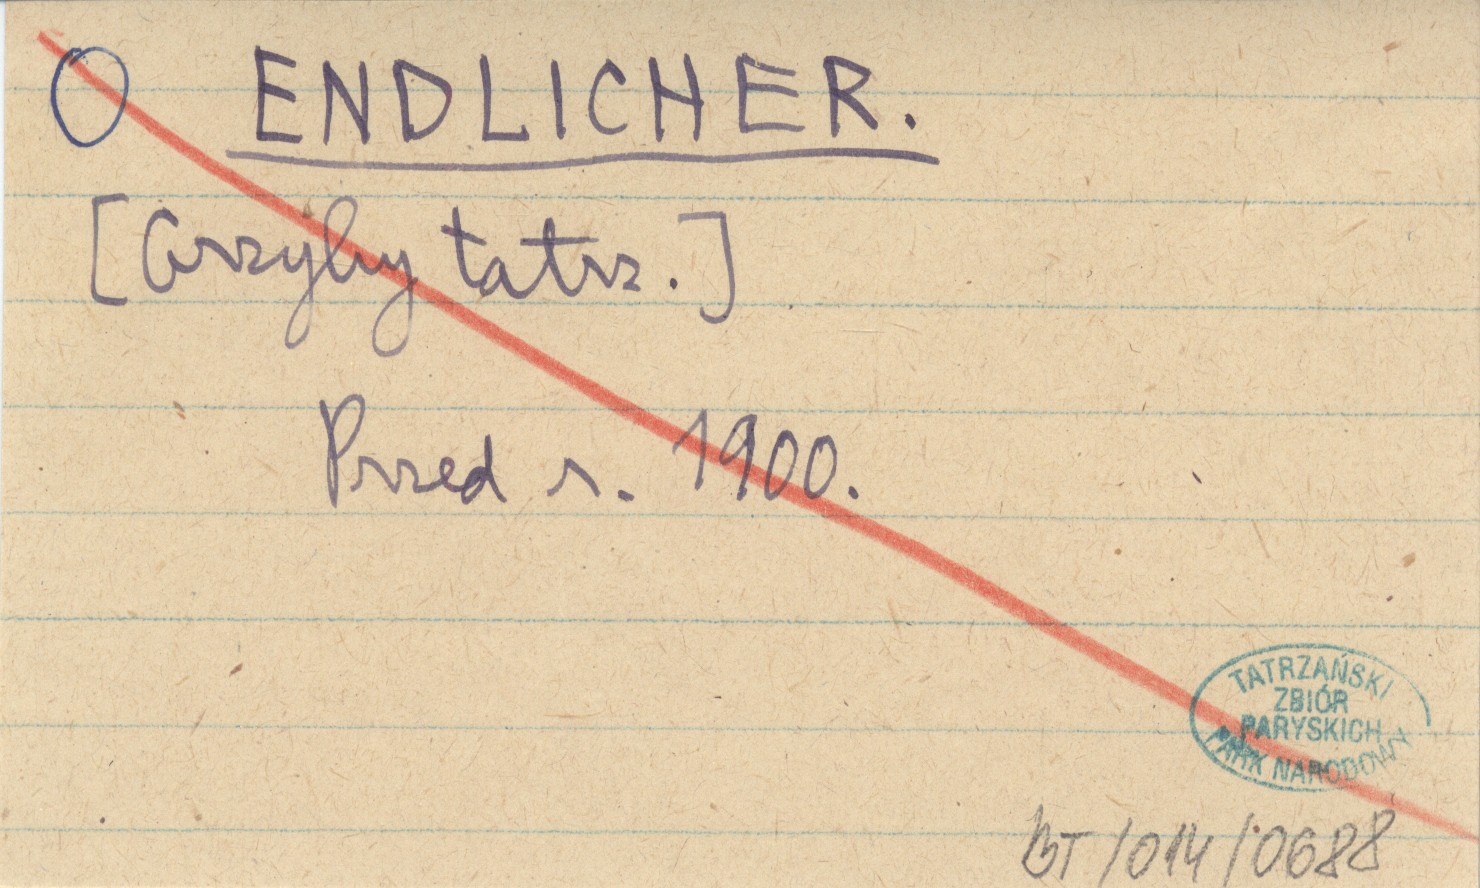 O ENDLICHER.
[Grzyby tatrz.]
Przed r. 1900.
TATRZAŃSKI
ZBIÓR
PARYSKICH
PARK NARODOWY
BT/014/0688